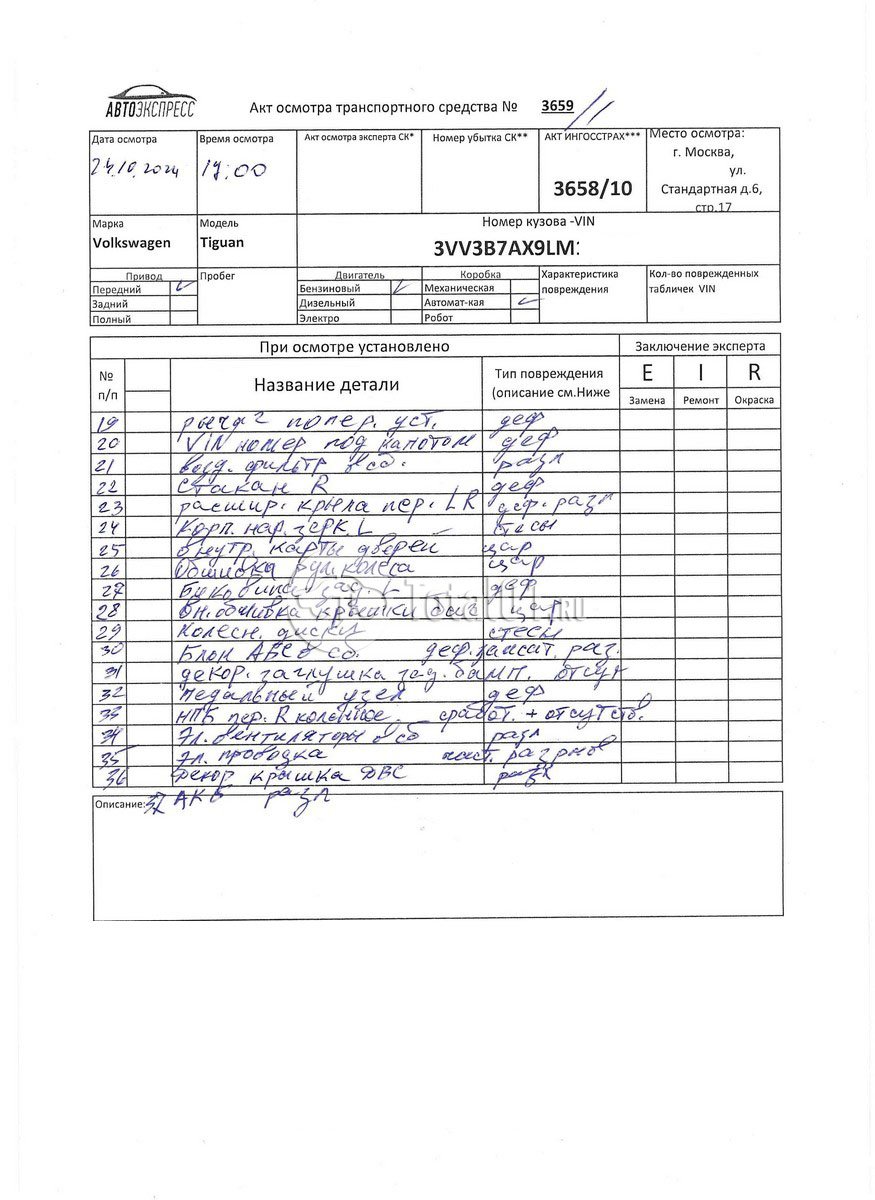 АВТОЭКСПРЕСС
Акт осмотра транспортного средства № 3659/11
Дата осмотра Время осмотра Акт осмотра эксперта СК* Номер убытка СК** АКТ ИНГОССТРАХ*** Место осмотра:
24.10.2024 17:00 3658/10 г. Москва,
ул.
Стандартная д.6,
стр.17
Марка Модель Номер кузова -VIN
Volkswagen Tiguan 3VV3B7AX9LM
Привод Пробег Двигатель Коробка Характеристика повреждения Кол-во поврежденных табличек VIN
Передний Бензиновый Механическая
Задний Дизельный Автомат-кая
Полный Электро Робот
При осмотре установлено Заключение эксперта
№ п/п Название детали Тип повреждения (описание см.Ниже E I R
Замена Ремонт Окраска
19 рычаг попер. уст. деф
20 VIN номер под капотом деф
21 возд. фильтр в сб. разл
22 Стакан R деф
23 расшир. крыла пер. LR деф. разл
24 Корп. нар. зерк. L тёсы
25 внутр. карты дверей цар
26 Обшивка рул. колеса цар
27 Боковина зад. L деф
28 вн. обшивка крышки баг цар
29 Колесн. диски стесы
30 Блок АБС в сб. раз.
31 декор. заглушка зад. бамп. отсут
32 педальный узел деф
33 НПБ пер. R коленное сработ. + отсутств.
34 Эл. вентиляторы в сб разл
35 Эл. проводка част. разрыв
36 декор крышка ДВС разл
Описание: 37 АКБ разл
Total01.RU